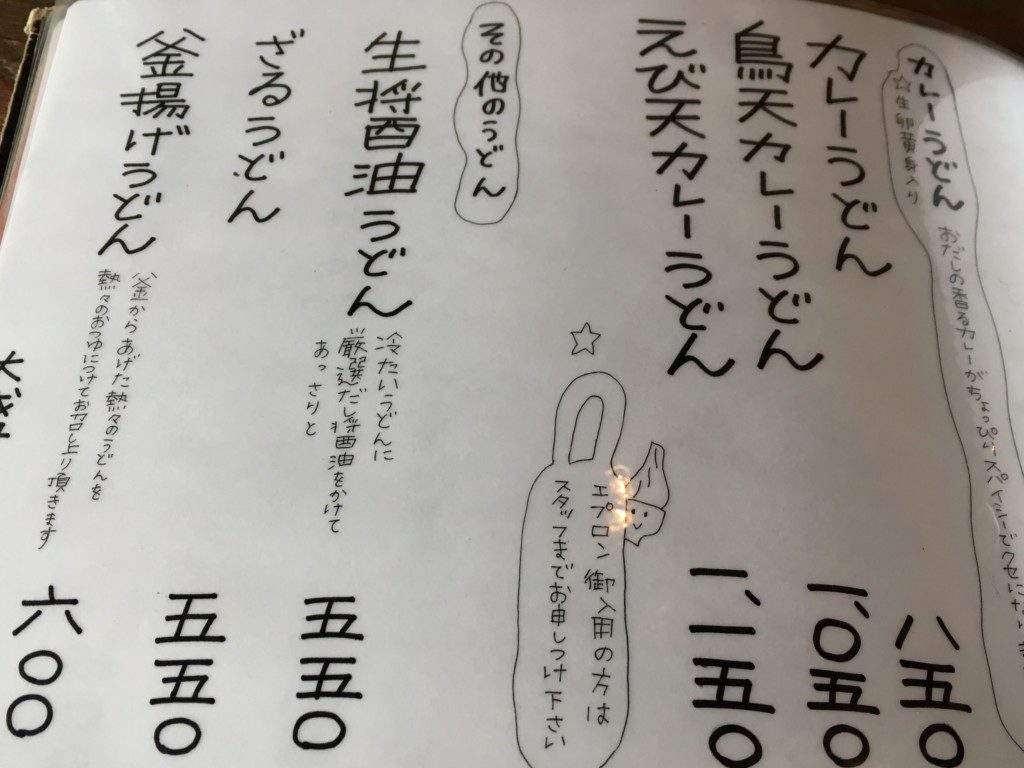 カレーうどん
☆生卵黄身入り
おだしの香るカレーがちょっぴりスパイシーで
カレーうどん
八五〇
鳥天カレーうどん
一、〇五〇
えび天カレーうどん
一、一五〇
☆
エプロン御入用の方は
スタッフまでお申しつけ下さい
その他のうどん
生醤油うどん
冷たいうどんに
厳選だし醤油をかけて
あっさりと
五五〇
ざるうどん
五五〇
釜揚げうどん
釜からあげた熱々のうどんを
熱々のおつゆにつけてお召し上り頂きます
六〇〇
大盛